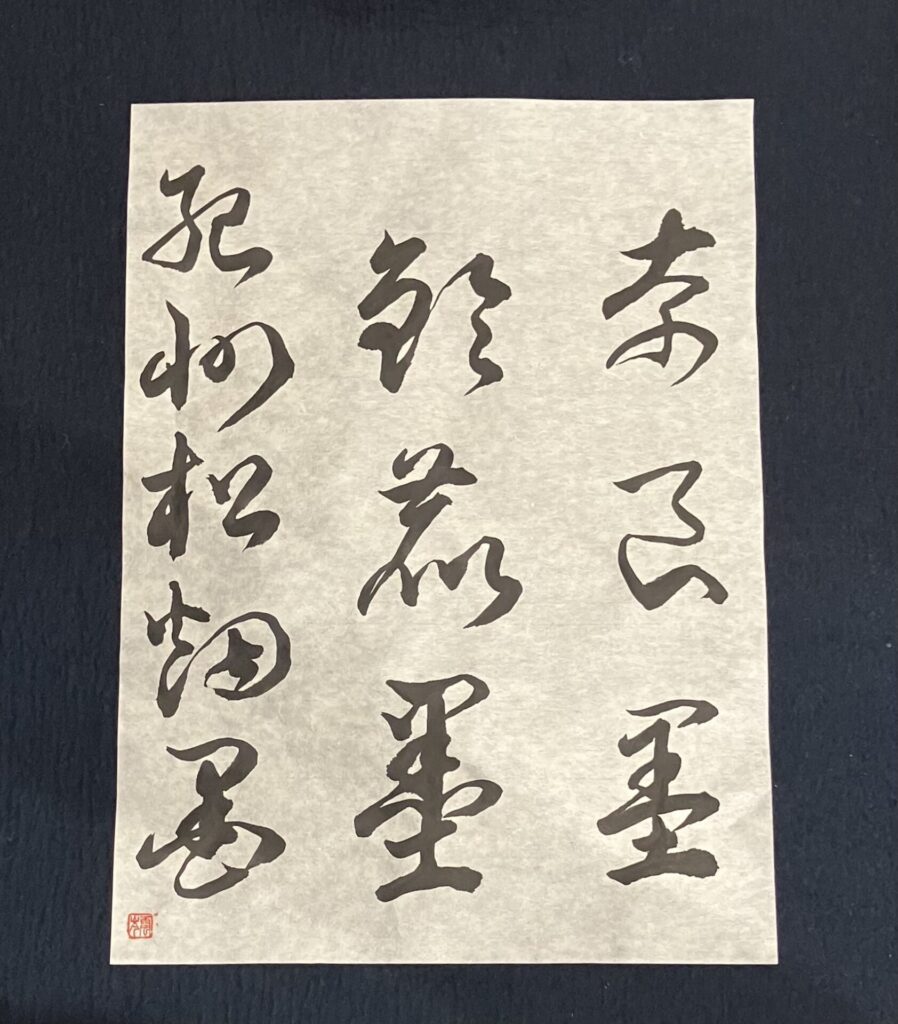 奈良墨
鈴鹿墨
紀州松煙墨